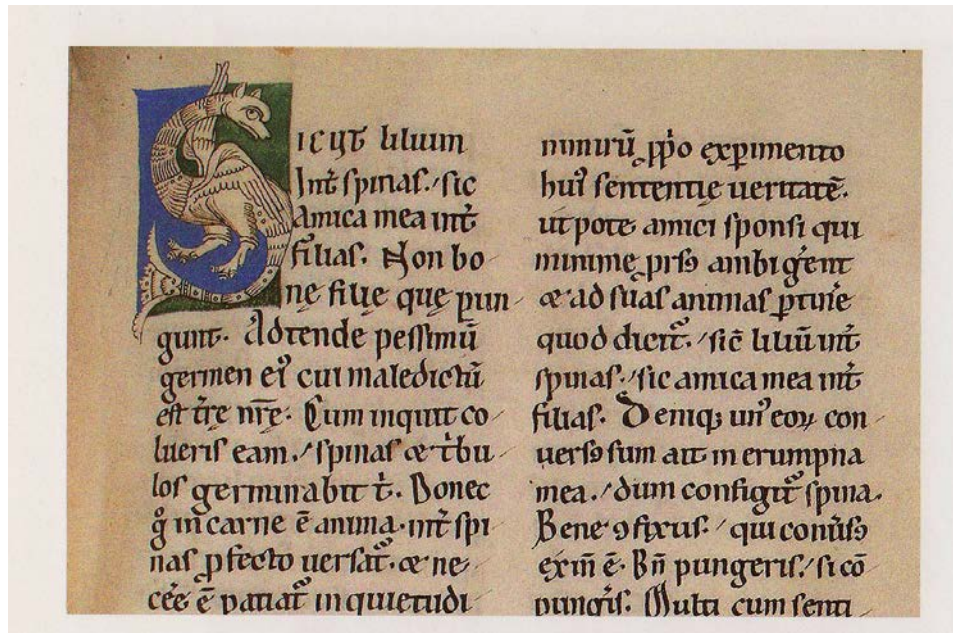 Sicut lilium
Int̄ spinas. sic
Amica mea int̄
filias. Non bo
nę filię quę pun
gunt. Adtende pessimū
germen eiꝰ cui maledictū
est t̄rę nr̄ę. Cum inquit co
lueris eam. spinas & t̄bu
los germinabit t̄. Donec
g̊ in carne ē anima. int̄ spi
nas ꝓfecto uersat᷑. & ne
cēe ē patiat᷑ inquietudi
mirū ꝓpo exꝑimento
huiꝰ sententię ueritatē.
utpote amici sponsi qui
minimę prsꝰ ambigent
& ad suas animas ꝑtin̄e
quod dicit᷑. sic̄ liliū int̄
spinas. sic amica mea int̄
filias. Deniq; unꝰ eoꝝ con
uersꝰ sum ait in erumpna
mea. dum configit᷑ spina.
Bene ꝯfixus. qui conūsꝰ
exin̄ ē. Bn̄ pungeris. si cō
pungr̄is. Multi cum senti